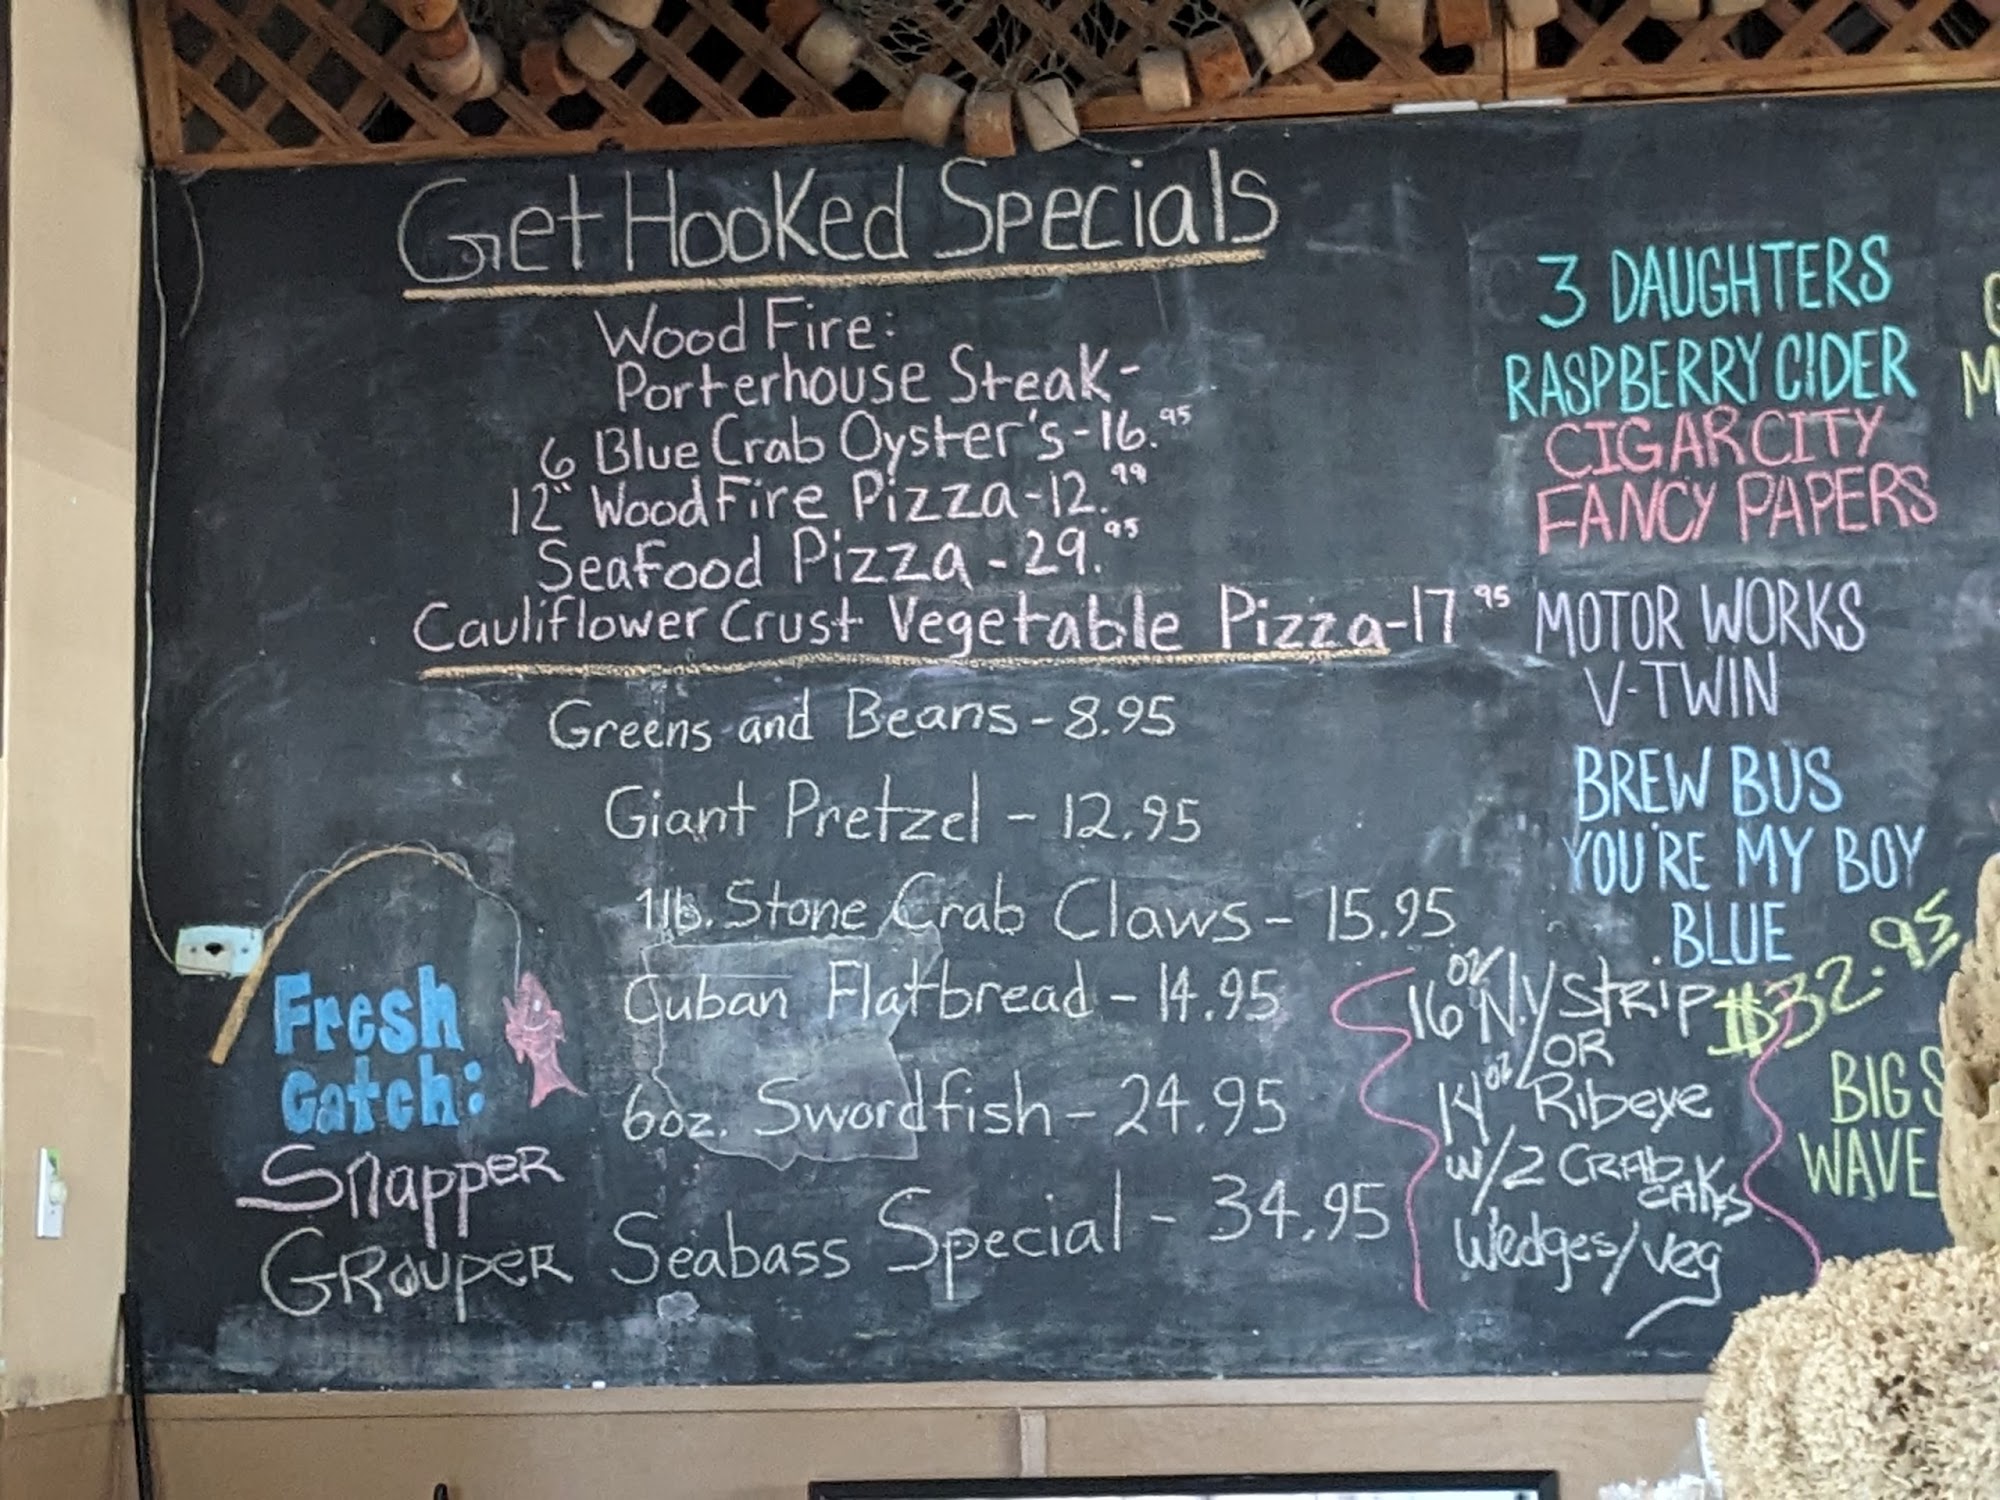 Get Hooked Specials
Wood Fire:
Porterhouse Steak-
6 Blue Crab Oyster's-16.95
12" Wood Fire Pizza-12.99
Seafood Pizza-29.95
Cauliflower Crust Vegetable Pizza-17 95
Greens and Beans-8.95
Giant Pretzel-12.95
1lb. Stone Crab Claws-15.95
Cuban Flatbread-14.95
6oz. Swordfish-24.95
Seabass Special-34.95
Fresh
Catch:
Snapper
Grouper
3 DAUGHTERS
RASPBERRY CIDER
CIGAR CITY
FANCY PAPERS
MOTOR WORKS
V-TWIN
BREW BUS
YOU'RE MY BOY
BLUE
16oz N.Y Strip $32.95
OR
14oz Ribeye
w/2 CRAB
CAKES
Wedges/veg
BIG
WAVE